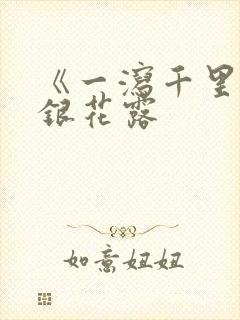 《一瀉千里
銀花露
如意妞妞